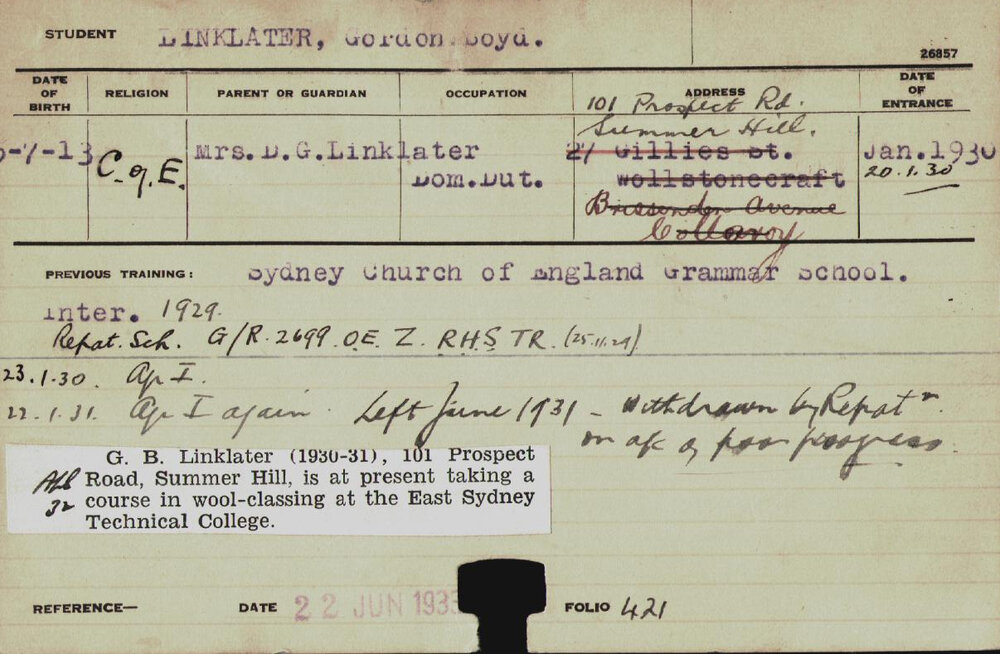 STUDENT LINKLATER, Gordon Boyd.
26857
DATE OF BIRTH RELIGION PARENT OR GUARDIAN OCCUPATION ADDRESS DATE OF ENTRANCE
101 Prospect Rd.
Summer Hill.
-7-13 C of E. Mrs. D.G.Linklater 27 Gillies St. Jan.1930
Dom.Dut. Wollstonecraft 20.1.30
Brissenden Avenue
Collaroy
PREVIOUS TRAINING: Sydney Church of England Grammar School.
Inter. 1929.
Repat. Sch. G/R. 2699 O.E. Z. R.H.S TR. (25.11.29)
23.1.30. Ag. I.
22.1.31. Ag I again. Left June 1931 - Withdrawn by Repatn.
on a/c of poor progress.
G. B. Linklater (1930-31), 101 Prospect
Road, Summer Hill, is at present taking a
32 course in wool-classing at the East Sydney
Technical College.
REFERENCE— DATE 22 JUN 1933 FOLIO 421